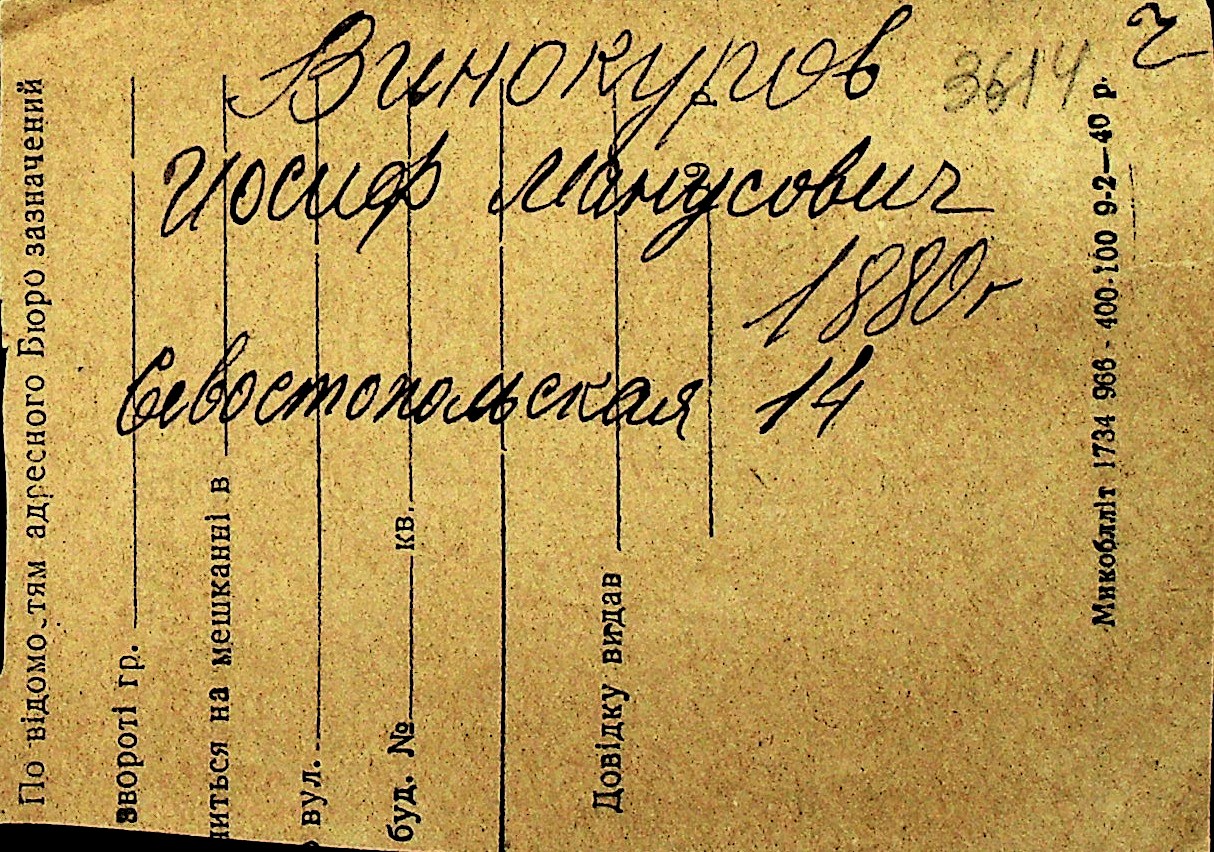 Винокуров 3614
Иосиф Манусович
1880 г
Севостопольская 14
По відомостям адресного Бюро зазначений
звороті гр.
ниться на мешканні в
вул.
буд. № кв.
Довідку видав
Микобліт 1734 966 - 400·100 9-2—40 р.